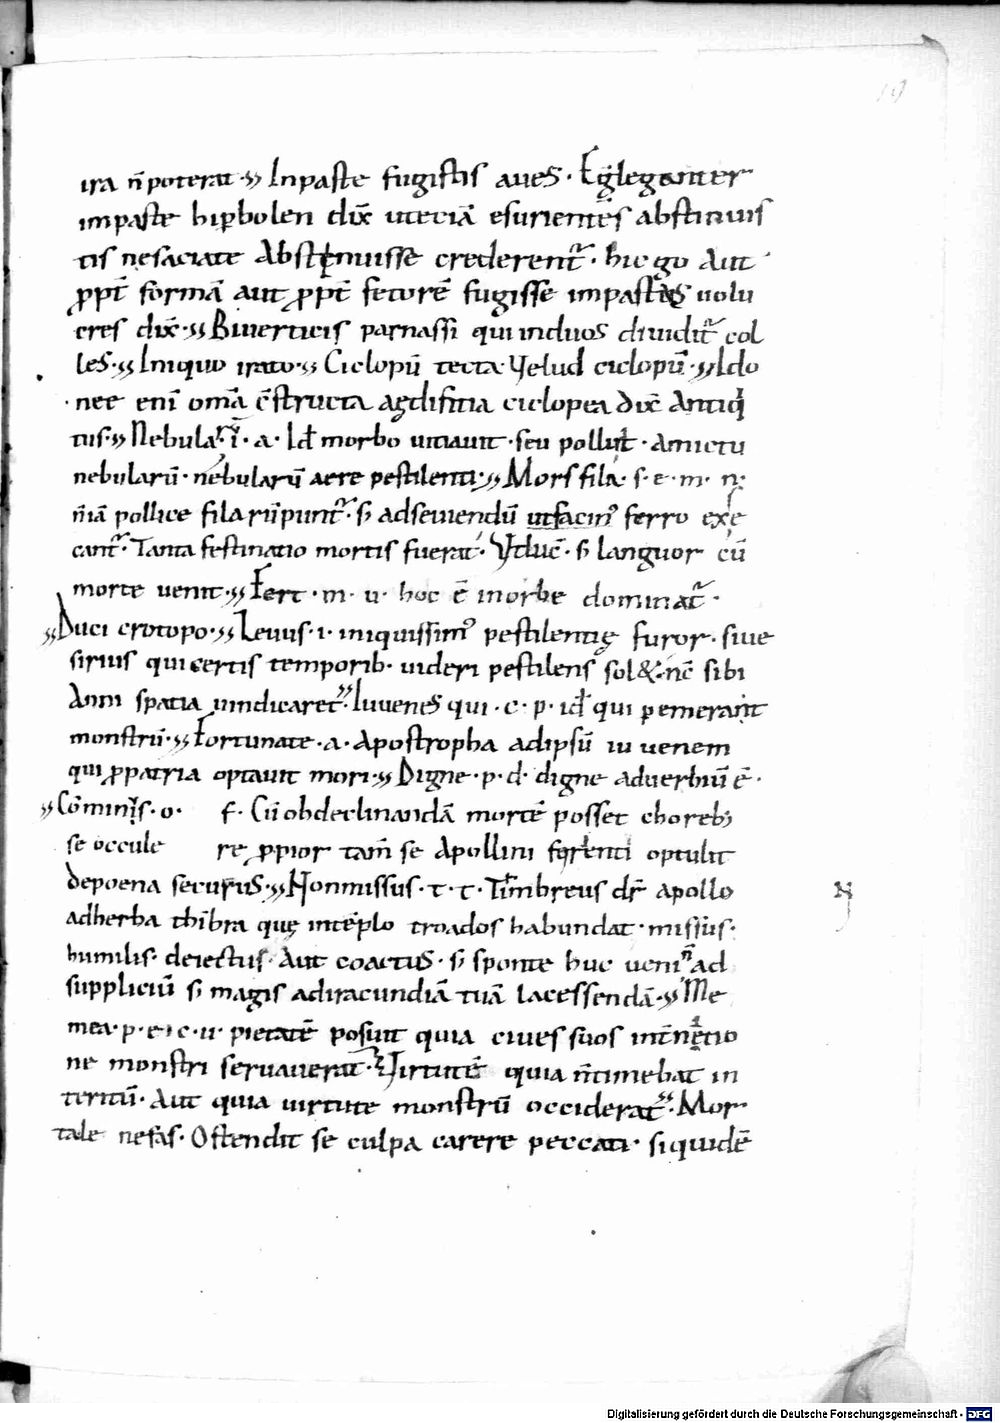 19
ira n̄ poterat·» Inpaste fugistis aues· Egˡleganter
impaste hiꝑbolen dix̄ ut etiā esurientēs abstinuis
tis ne satiate Abstenuisse crederent̄· hic ḡo Aut
ꝓpt̄ formā aut ꝓpt̄ fetorē fugisse impastas uolu
cres dix̄·» Biuerticis parnassi qui in duos diuidit̄ col
les·» Iniquo irato·» Ciclopū tecta· Vel ud ciclopū·» Ido
nee enī om̄a c̄structa aędifitia ciclopea dix̄ Antiq
tus·» Nebulaꝝ ī· a· Id morbo uitiauit· seu polluit· Amictu
nebularū· nebularū aere pestilenti·» Mors fila· s· e· m· n·
n̄iā pollice fila rūpunt̄· s; ad seuiendū ut facin᾽ ferro exse
cant̄· Tanta festinatio mortis fuerat· Vt luc̄· s; languor cū
morte uenit·» Fert· m· u· hoc ē in orbe dominat̄·
» Duci crotopo·» Leuus· i· iniquissim᾽ pestilentię furor· siue
sirius qui certis temporib· uideri pestilens sol &· nc̄ sibi
Anni spatia uindicaret·» Iuuenes qui· c· p· id qui ꝑemerant
monstrū·» Fortunate· a· Apostropha ad ipsū iuuenem
qui ꝓ patria optauit mori·» Digne· p· d· digne aduerbiū ē·
» Cōminꝰs· o· f· Cū ob declinandā mortē posset choreb᾽
se occule re ꝓpior tam̄ se Apollini ferienti optulit
de poena securus·» Non missus· t· t· Timbreus dr̄ apollo
ad herba thibra quę in tēplo troados habundat· missus·
humilis· deiectus· Aut coactus· s; sponte huc uenit ad
suppliciū s; magis ad iracundiā tuā lacessendā·» Me
mea· p· e· c· u· pietatē posuit quia ciues suos int̄nętio
ne monstri seruauerat·» Virtutē quia n̄ timebat in
teritū· Aut quia uirtute monstrū occiderat·» Mor
tale nefas· Ostendit se culpa carere peccati· siquidē
Digitalisierung gefördert durch die Deutsche Forschungsgemeinschaft - DFG